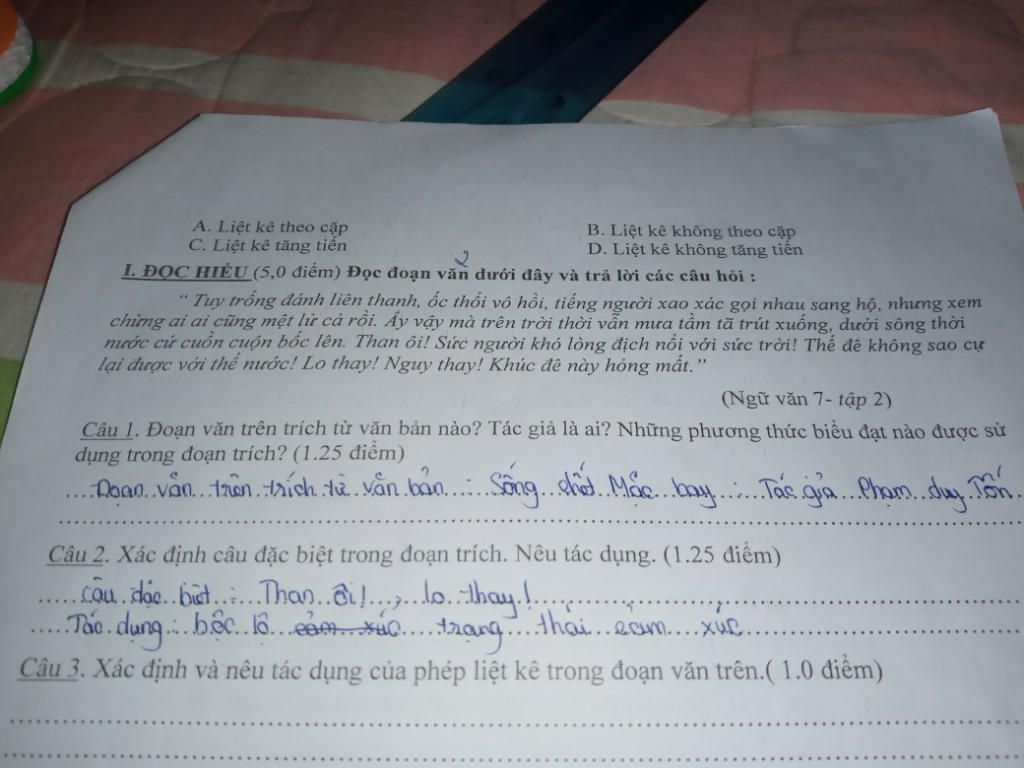 A. Liệt kê theo cặp B. Liệt kê không theo cặp
C. Liệt kê tăng tiến D. Liệt kê không tăng tiến
2
I. ĐỌC HIỂU (5,0 điểm) Đọc đoạn văn dưới đây và trả lời các câu hỏi :
“ Tuy trống đánh liên thanh, ốc thổi vô hồi, tiếng người xao xác gọi nhau sang hộ, nhưng xem
chừng ai ai cũng mệt lử cả rồi. Ấy vậy mà trên trời thời vẫn mưa tầm tã trút xuống, dưới sông thời
nước cứ cuồn cuộn bốc lên. Than ôi! Sức người khó lòng địch nổi với sức trời! Thế đê không sao cự
lại được với thế nước! Lo thay! Nguy thay! Khúc đê này hỏng mất.”
(Ngữ văn 7- tập 2)
Câu 1. Đoạn văn trên trích từ văn bản nào? Tác giả là ai? Những phương thức biểu đạt nào được sử
dụng trong đoạn trích? (1.25 điểm)
Đoạn văn trên trích từ văn bản : Sống chết Mặc bay : Tác giả Phạm duy Tốn
Câu 2. Xác định câu đặc biệt trong đoạn trích. Nêu tác dụng. (1.25 điểm)
câu đặc biệt : Than ôi! , lo thay!
Tác dụng : bộc lộ cảm xúc trạng thái cảm xúc
Câu 3. Xác định và nêu tác dụng của phép liệt kê trong đoạn văn trên.( 1.0 điểm)